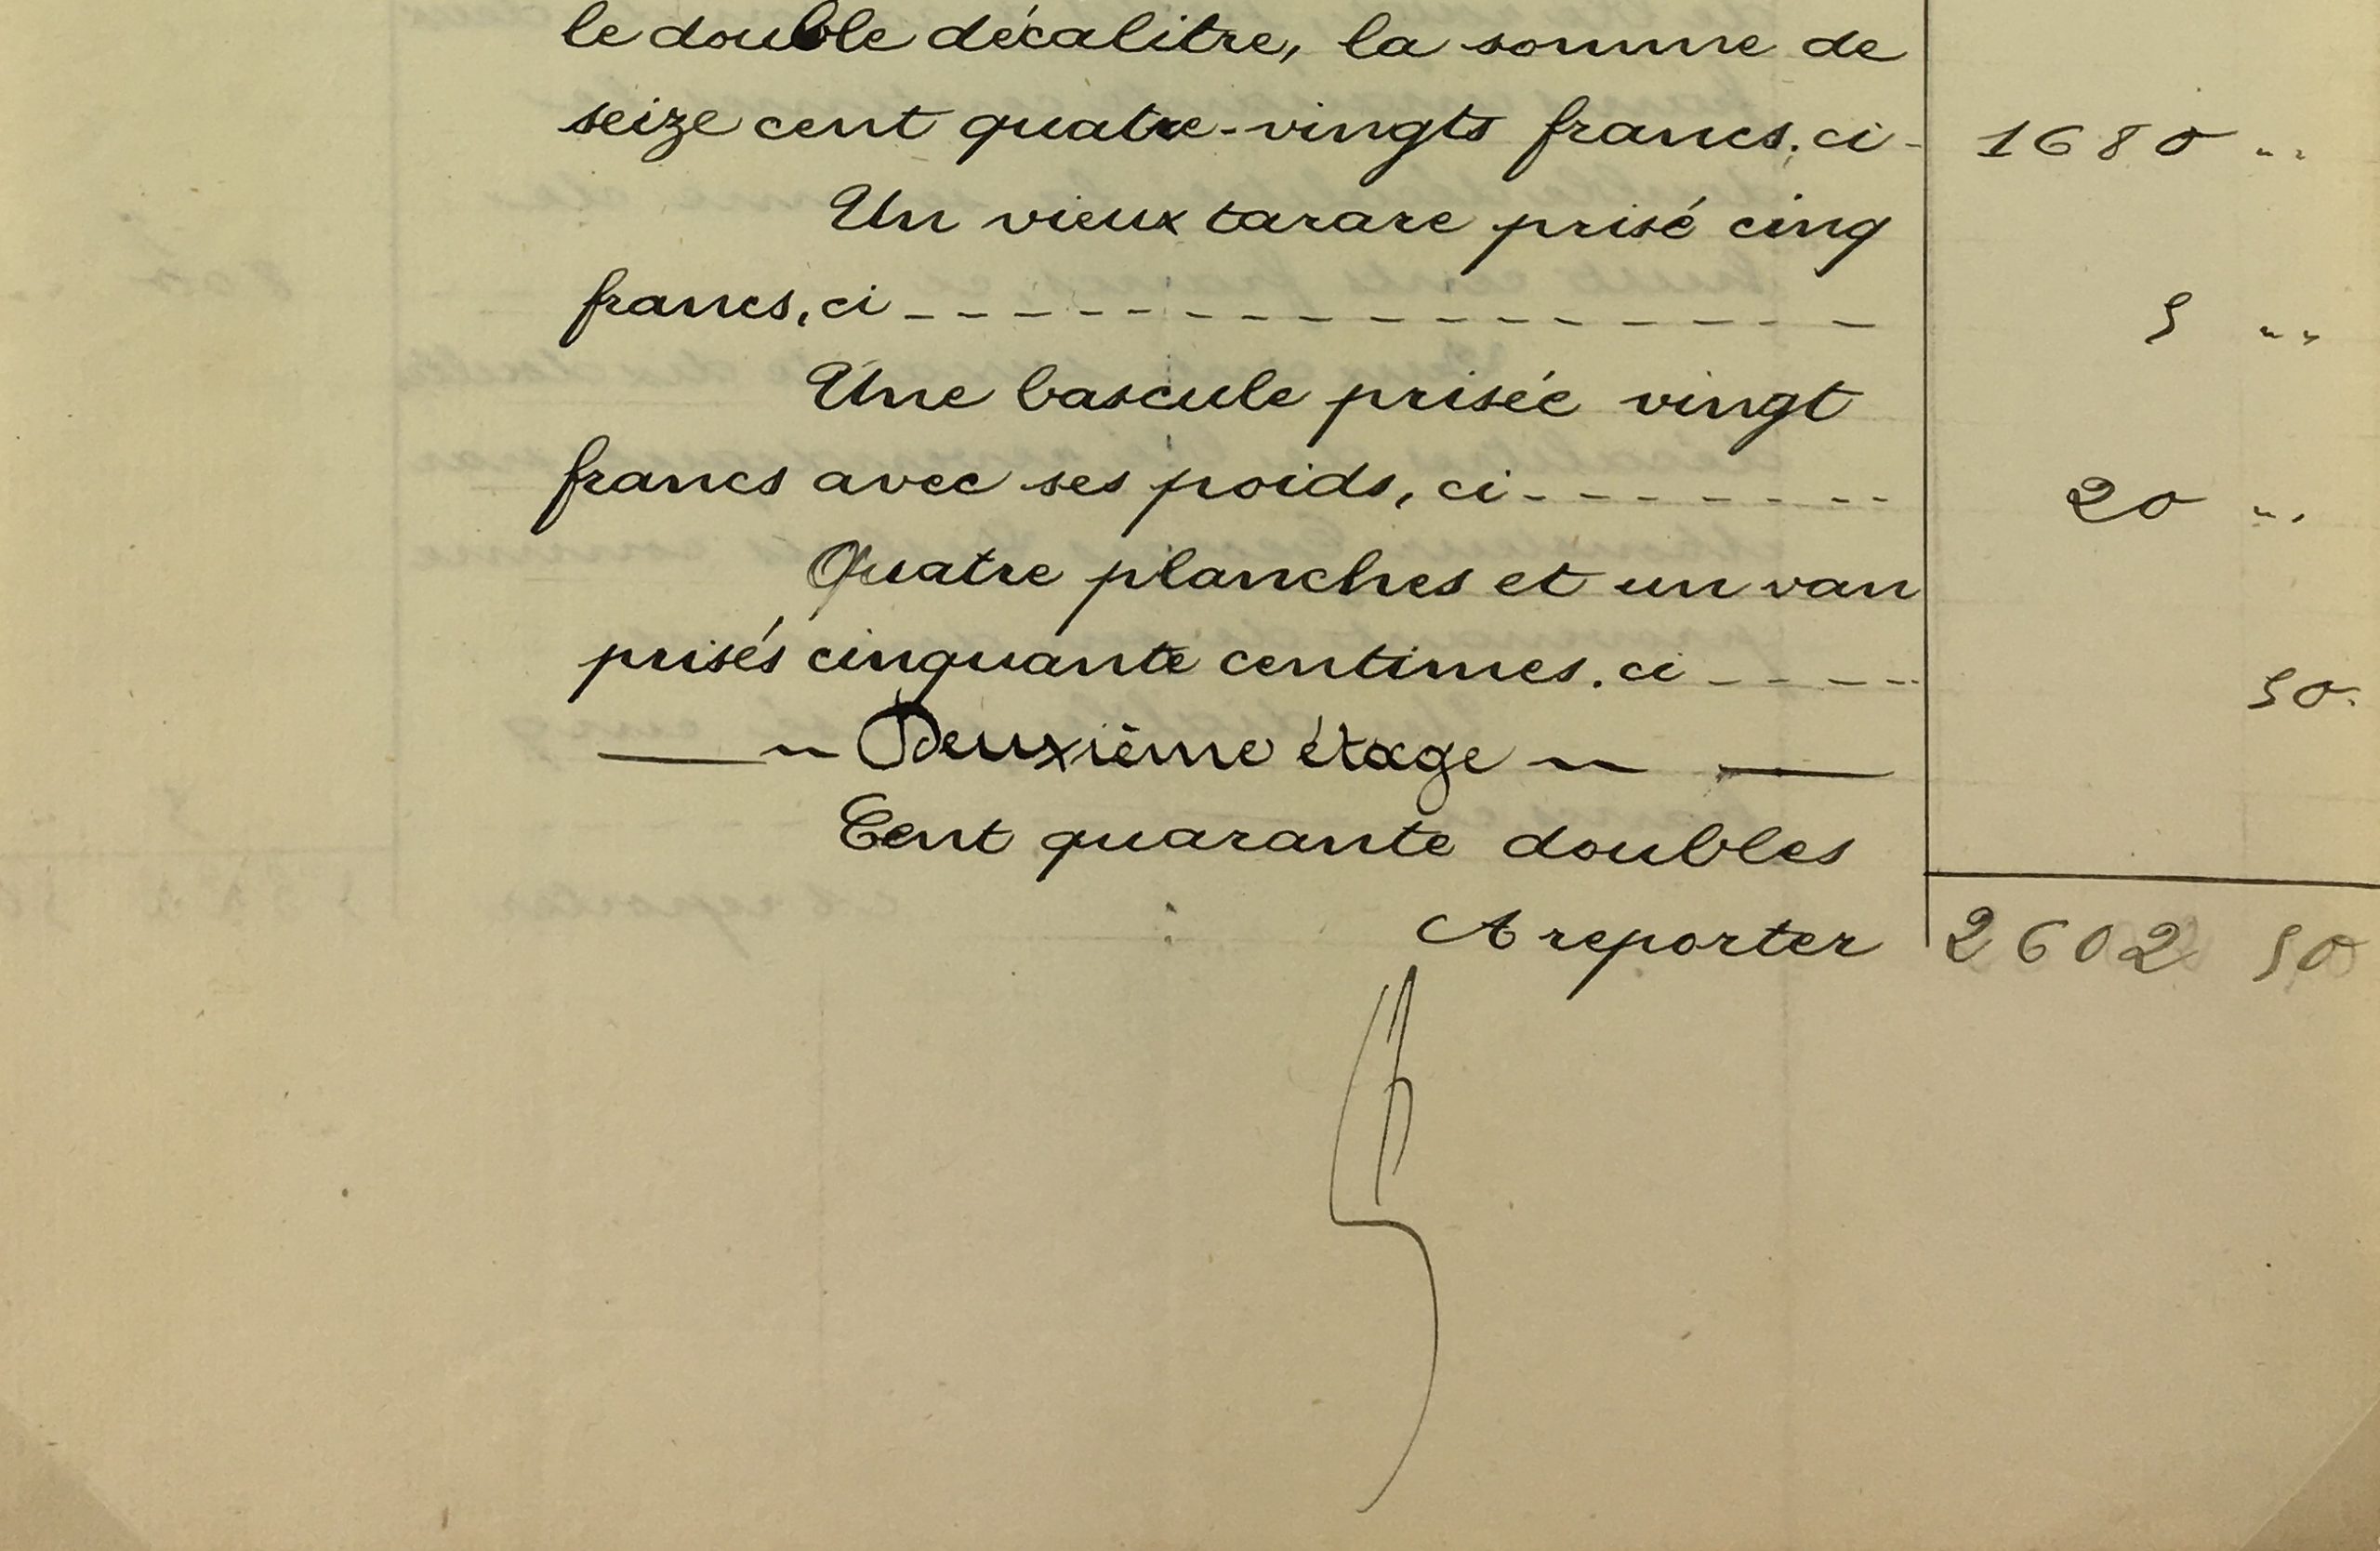 le double décalitre, la somme de
seize cent quatre-vingts francs. ci - 1680 "
Un vieux tarare prisé cinq
francs, ci - - - - - - - - - - - - - - 5 "
Une bascule prisée vingt
francs avec ses poids, ci - - - - - - - 20 "
Quatre planches et un van
prisés cinquante centimes. ci - - - - 50
— ~ Deuxième étage ~ —
Cent quarante doubles
A reporter 2602 50